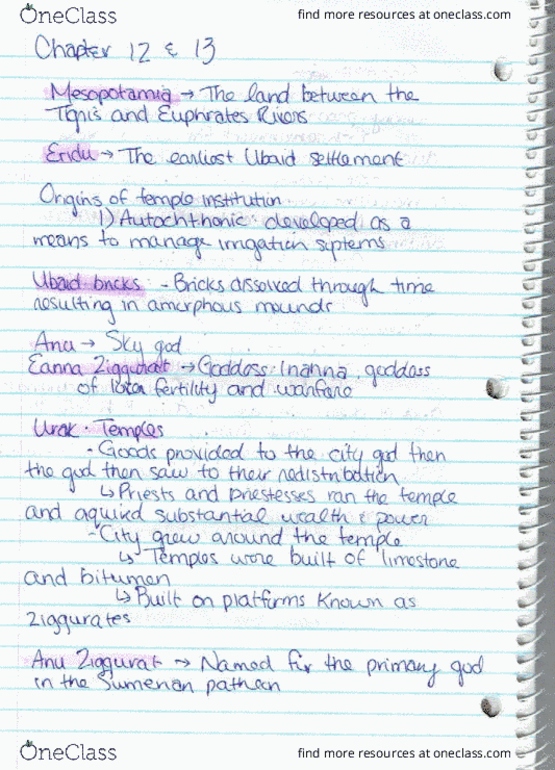 OneClass
find more resources at oneclass.com
Chapter 12 & 13
Mesopotamia → The land between the
Tigris and Euphrates Rivers
Eridu → The earliest Ubaid settlement
Origins of temple institution
1) Autochthonic: developed as a
means to manage irrigation systems
Ubaid bricks - Bricks dissolved through time
resulting in amorphous mounds
Anu → Sky god
Eanna Ziggurat → Goddess Inanna, goddess
of fertility and warfare
Uruk · Temples
- Goods provided to the city god then
the god then saw to their redistribution
↳ Priests and priestesses ran the temple
and aquired substantial wealth & power
- City grew around the temple
↳ Temples were built of limestone
and bitumen
↳ Built on platforms known as
ziggurates
Anu Ziggurat → Named for the primary god
in the Sumerian
OneClass
find more resources at oneclass.com